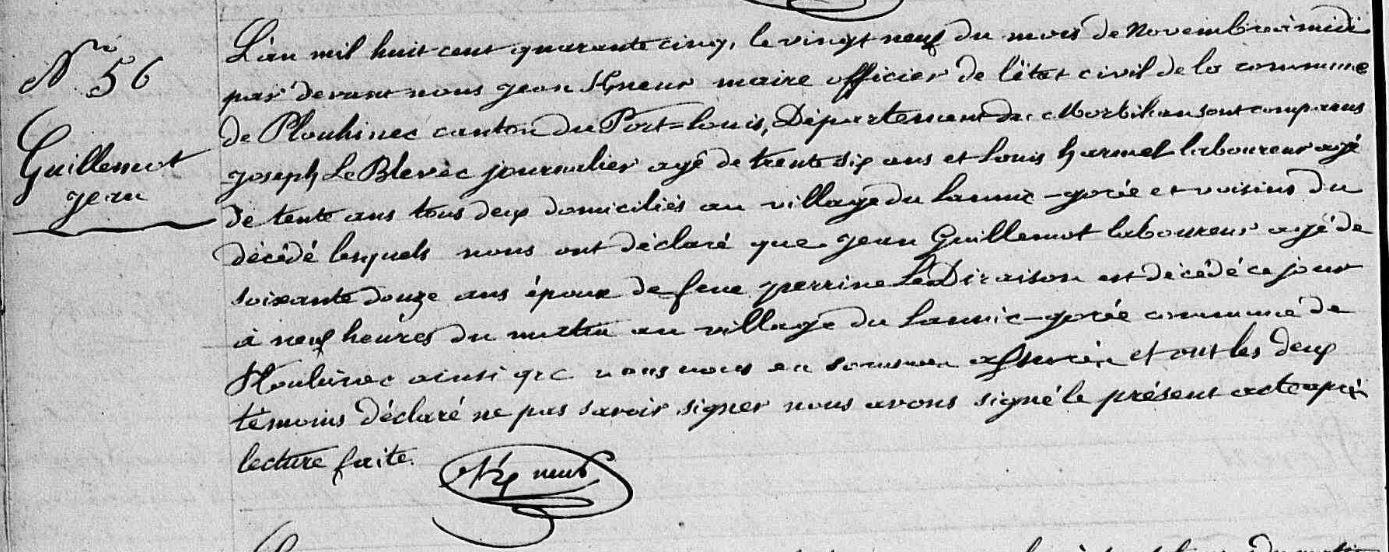 N° 56
Guillemot
jean
L'an mil huit cent quarante cinq, le vingt neuf du mois de Novembre à midi
par devant nous jean maire officier de l'état civil de la commune
de Plouhinec canton du Port=Louis, Département du Morbihan sont comparus
joseph Le Blevec journalier agé de trente six ans et Louis harmel laboureur agé
de tente ans tous deux domiciliés au village du Lannic-gorée et voisins du
décédé lesquels nous ont déclaré que jean Guillemot laboureur agé de
soixante douze ans époux de feue perrine Le Diraison est décédé ce jour
à neuf heures du matin au village du Lannic-gorée commune de
Plouhinec ainsi que nous nous en sommes assurés et ont les deux
temoins déclaré ne pas savoir signer nous avons signé le présent acte après
lecture faite.